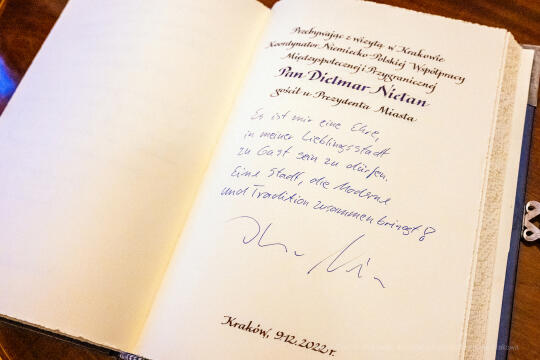 Przebywając z wizytą w Krakowie
Koordynator Niemiecko-Polskiej Współpracy
Międzyspołecznej i Przygranicznej
Pan Dietmar Nietan
gościł u Prezydenta Miasta
Es ist mir eine Ehre,
in meiner Lieblingsstadt
zu Gast sein zu dürfen.
Eine Stadt, die Moderne
und Tradition zusammenbringt!
Kraków, 9.12.2022 r.